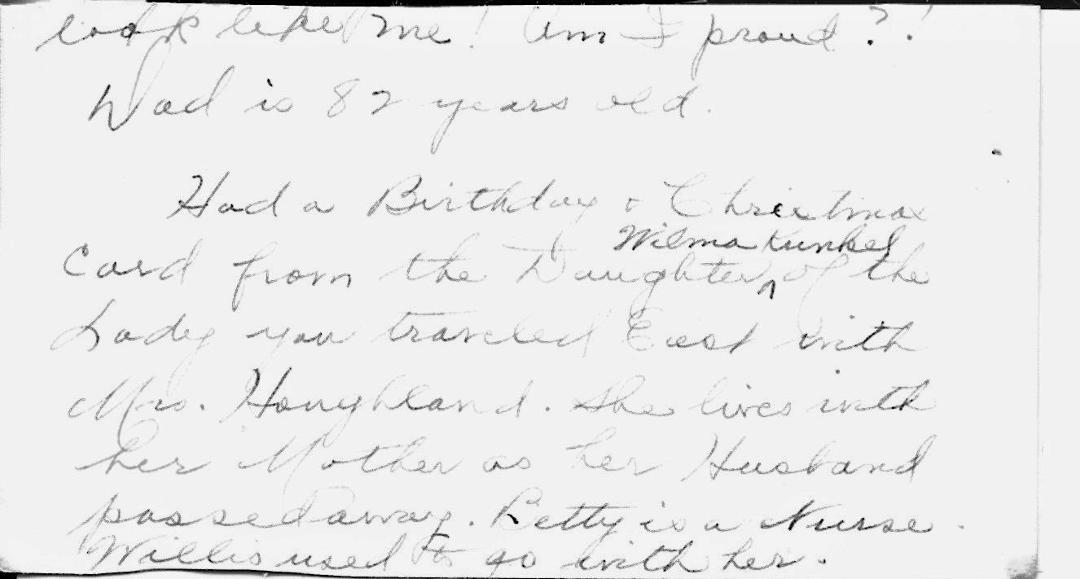 look like me! Am I proud?!
Dad is 82 years old.
Had a Birthday & Christmas
Wilma Kunkel
Card from the Daughter ^ of the
Lady you traveled East with
Mrs. Houghland. She lives with
her Mother as her Husband
passed away. Betty is a Nurse.
Willis used to go with her.